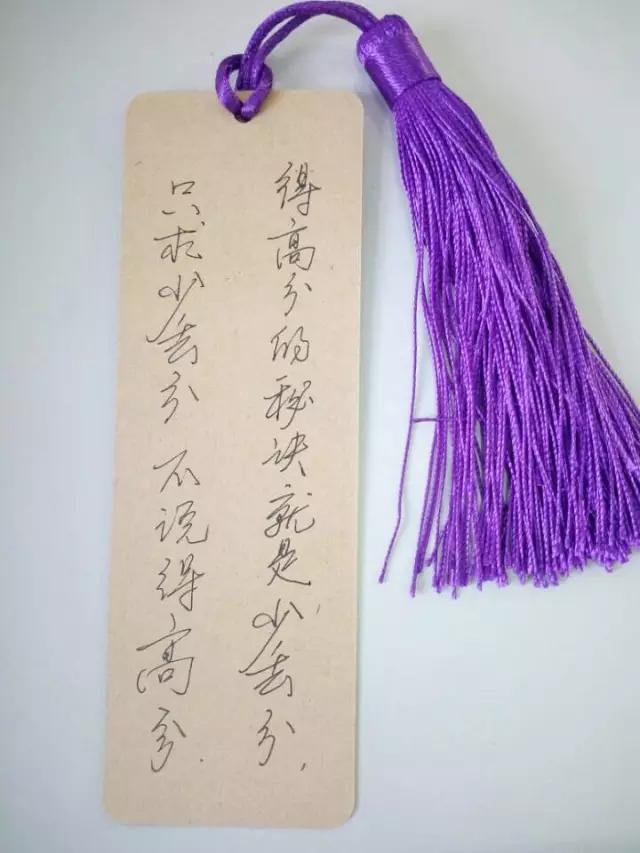 得高分的秘诀就是少丢分，
只求少丢分 不说得高分.